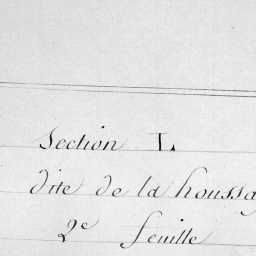 Section L
dite de la houssa
2e feuille